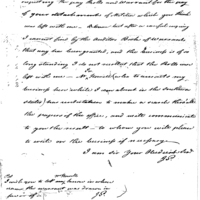 inquiring the pay Rolls and Warrant for the pay
of your detachment of Militia which you think
was left with me. However after a careful inquiry
I cannot find by the Auditor Books of Warrants
that any has been granted, and the business is of so
long standing I do not recollect that the Rolls was
left with me. Mr. who transacts my
business here whilst I was absent in the Southern
States has undertaken to make a search thro' the
papers of the office, and will communicate
to you the result to whom you will please
to write on the business if necessary
I am Sir Your Obedient Serv.
I wish you to let my know in whose
name the warrant was drawn in
favor of